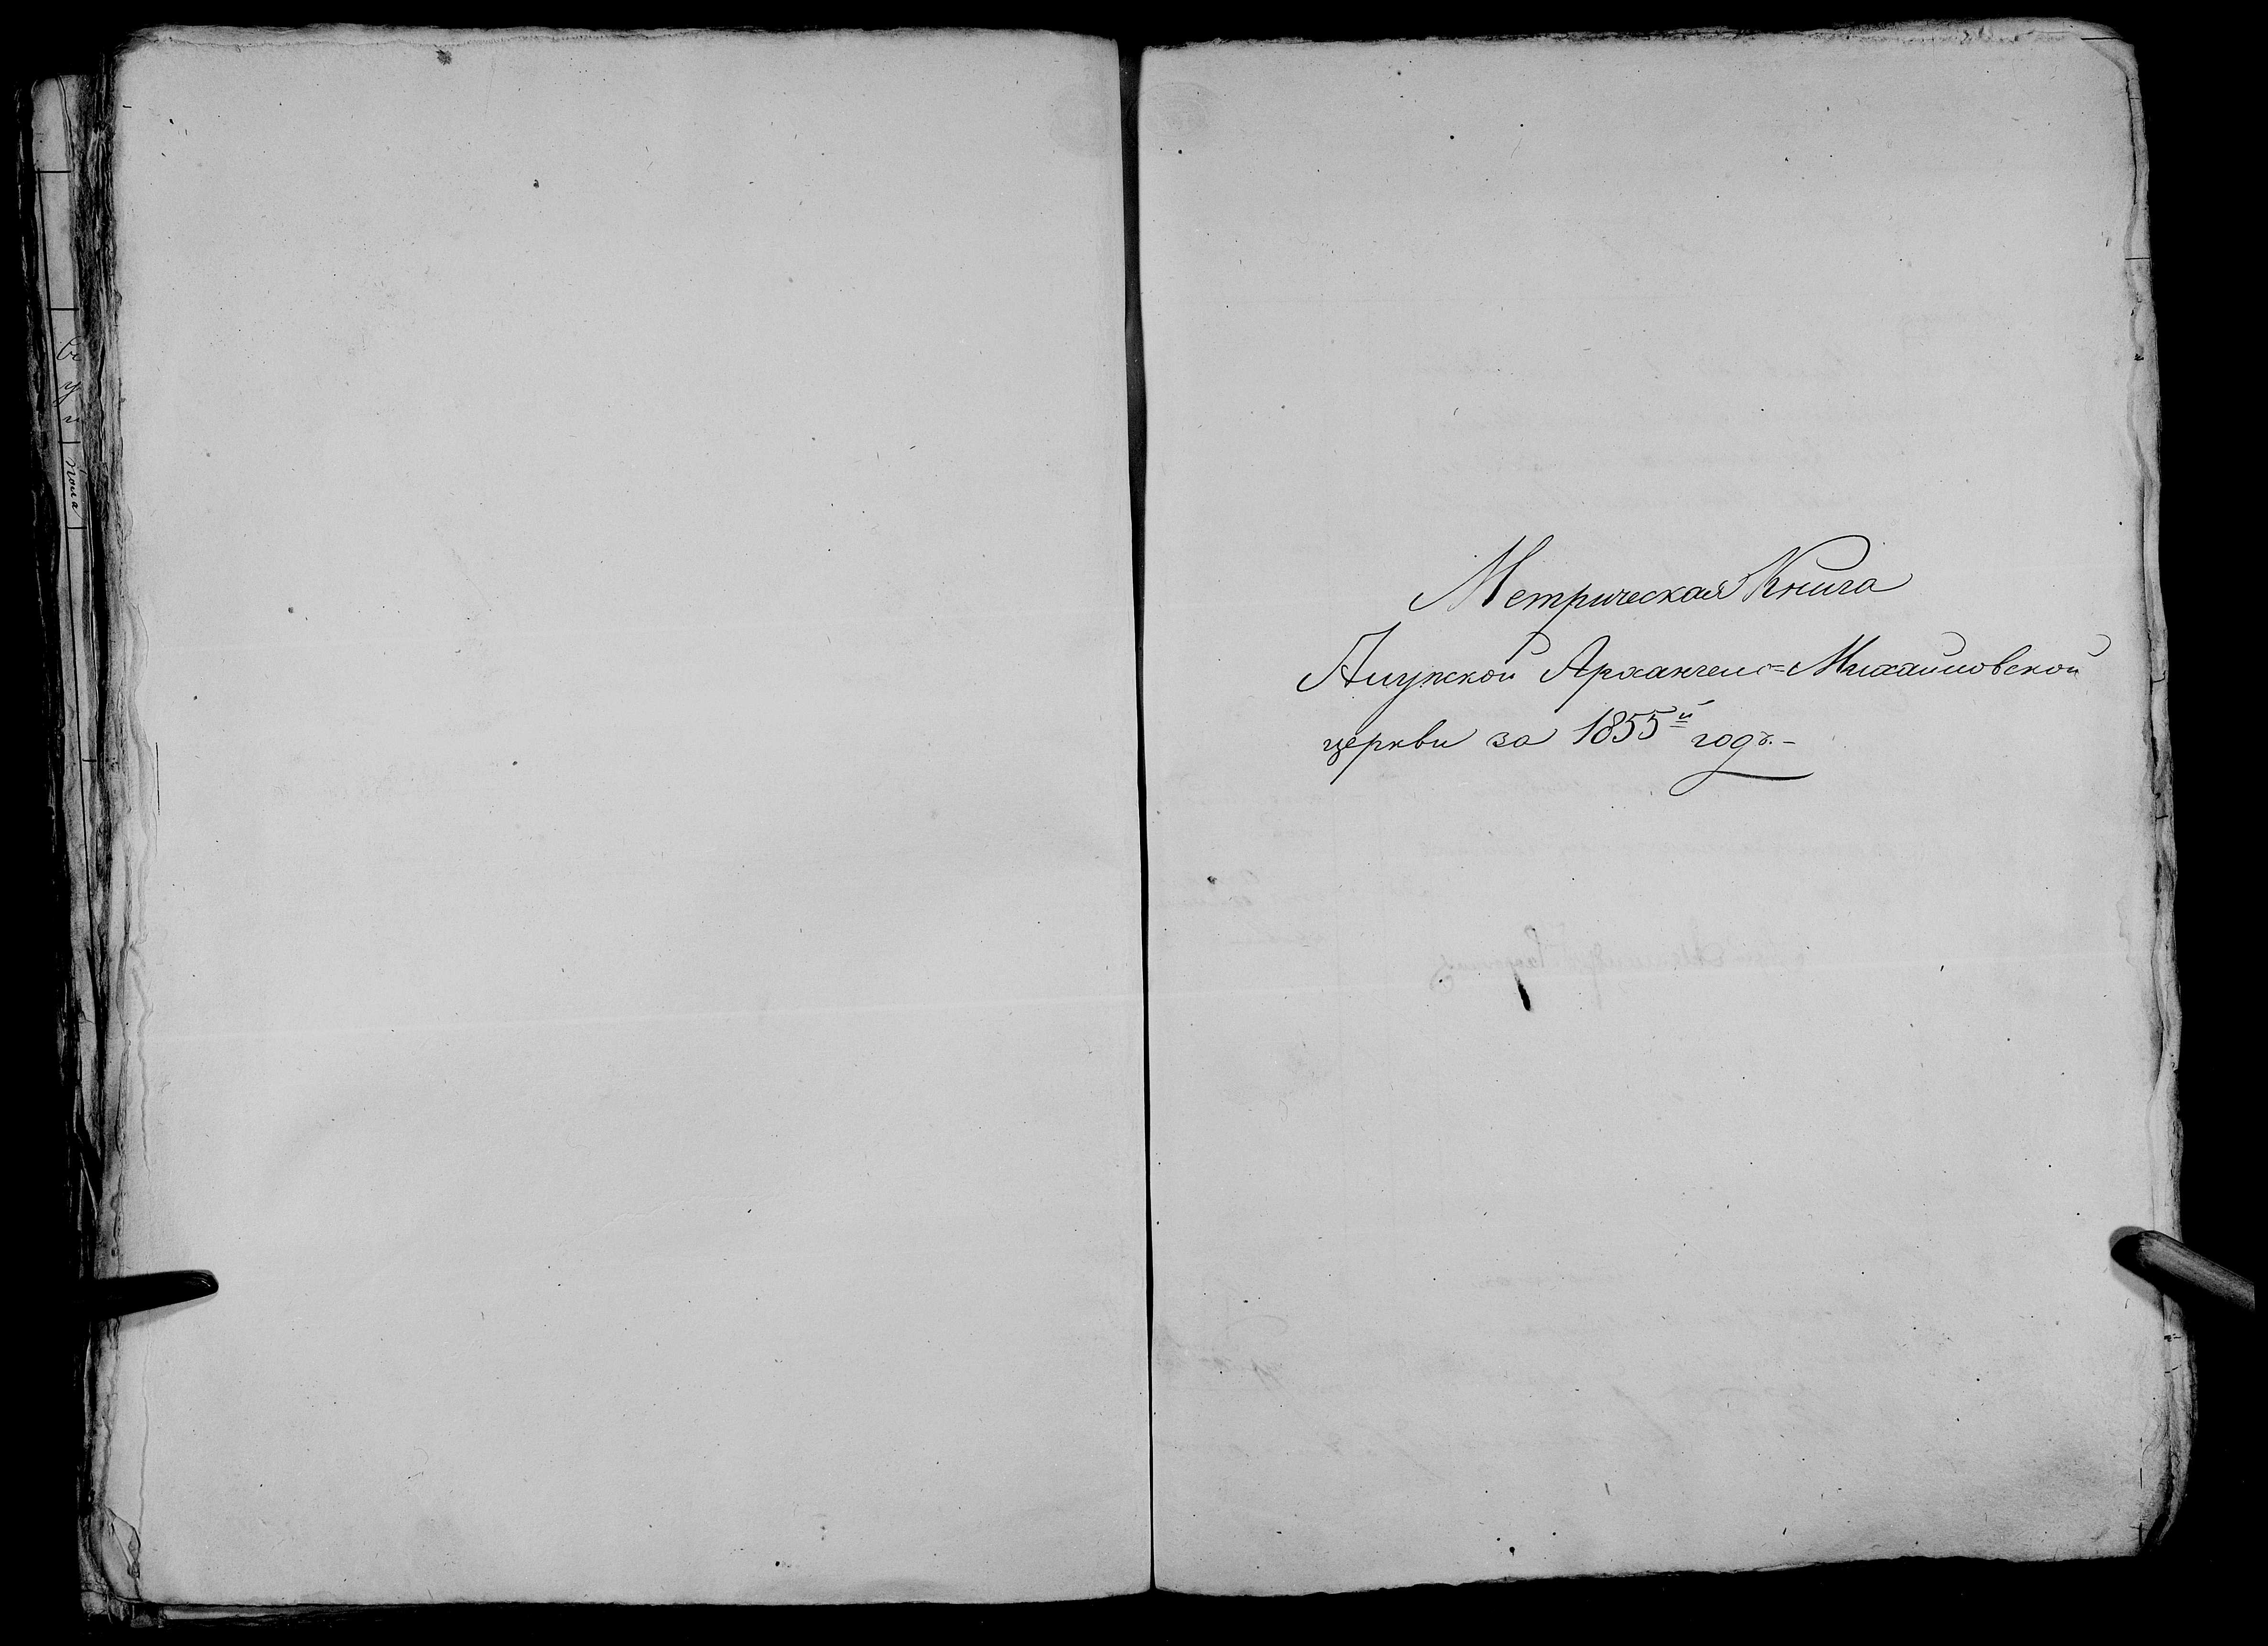 Метрическая Книга
Анужской Архангело=Михайловской
церкви за 1855й годъ.–